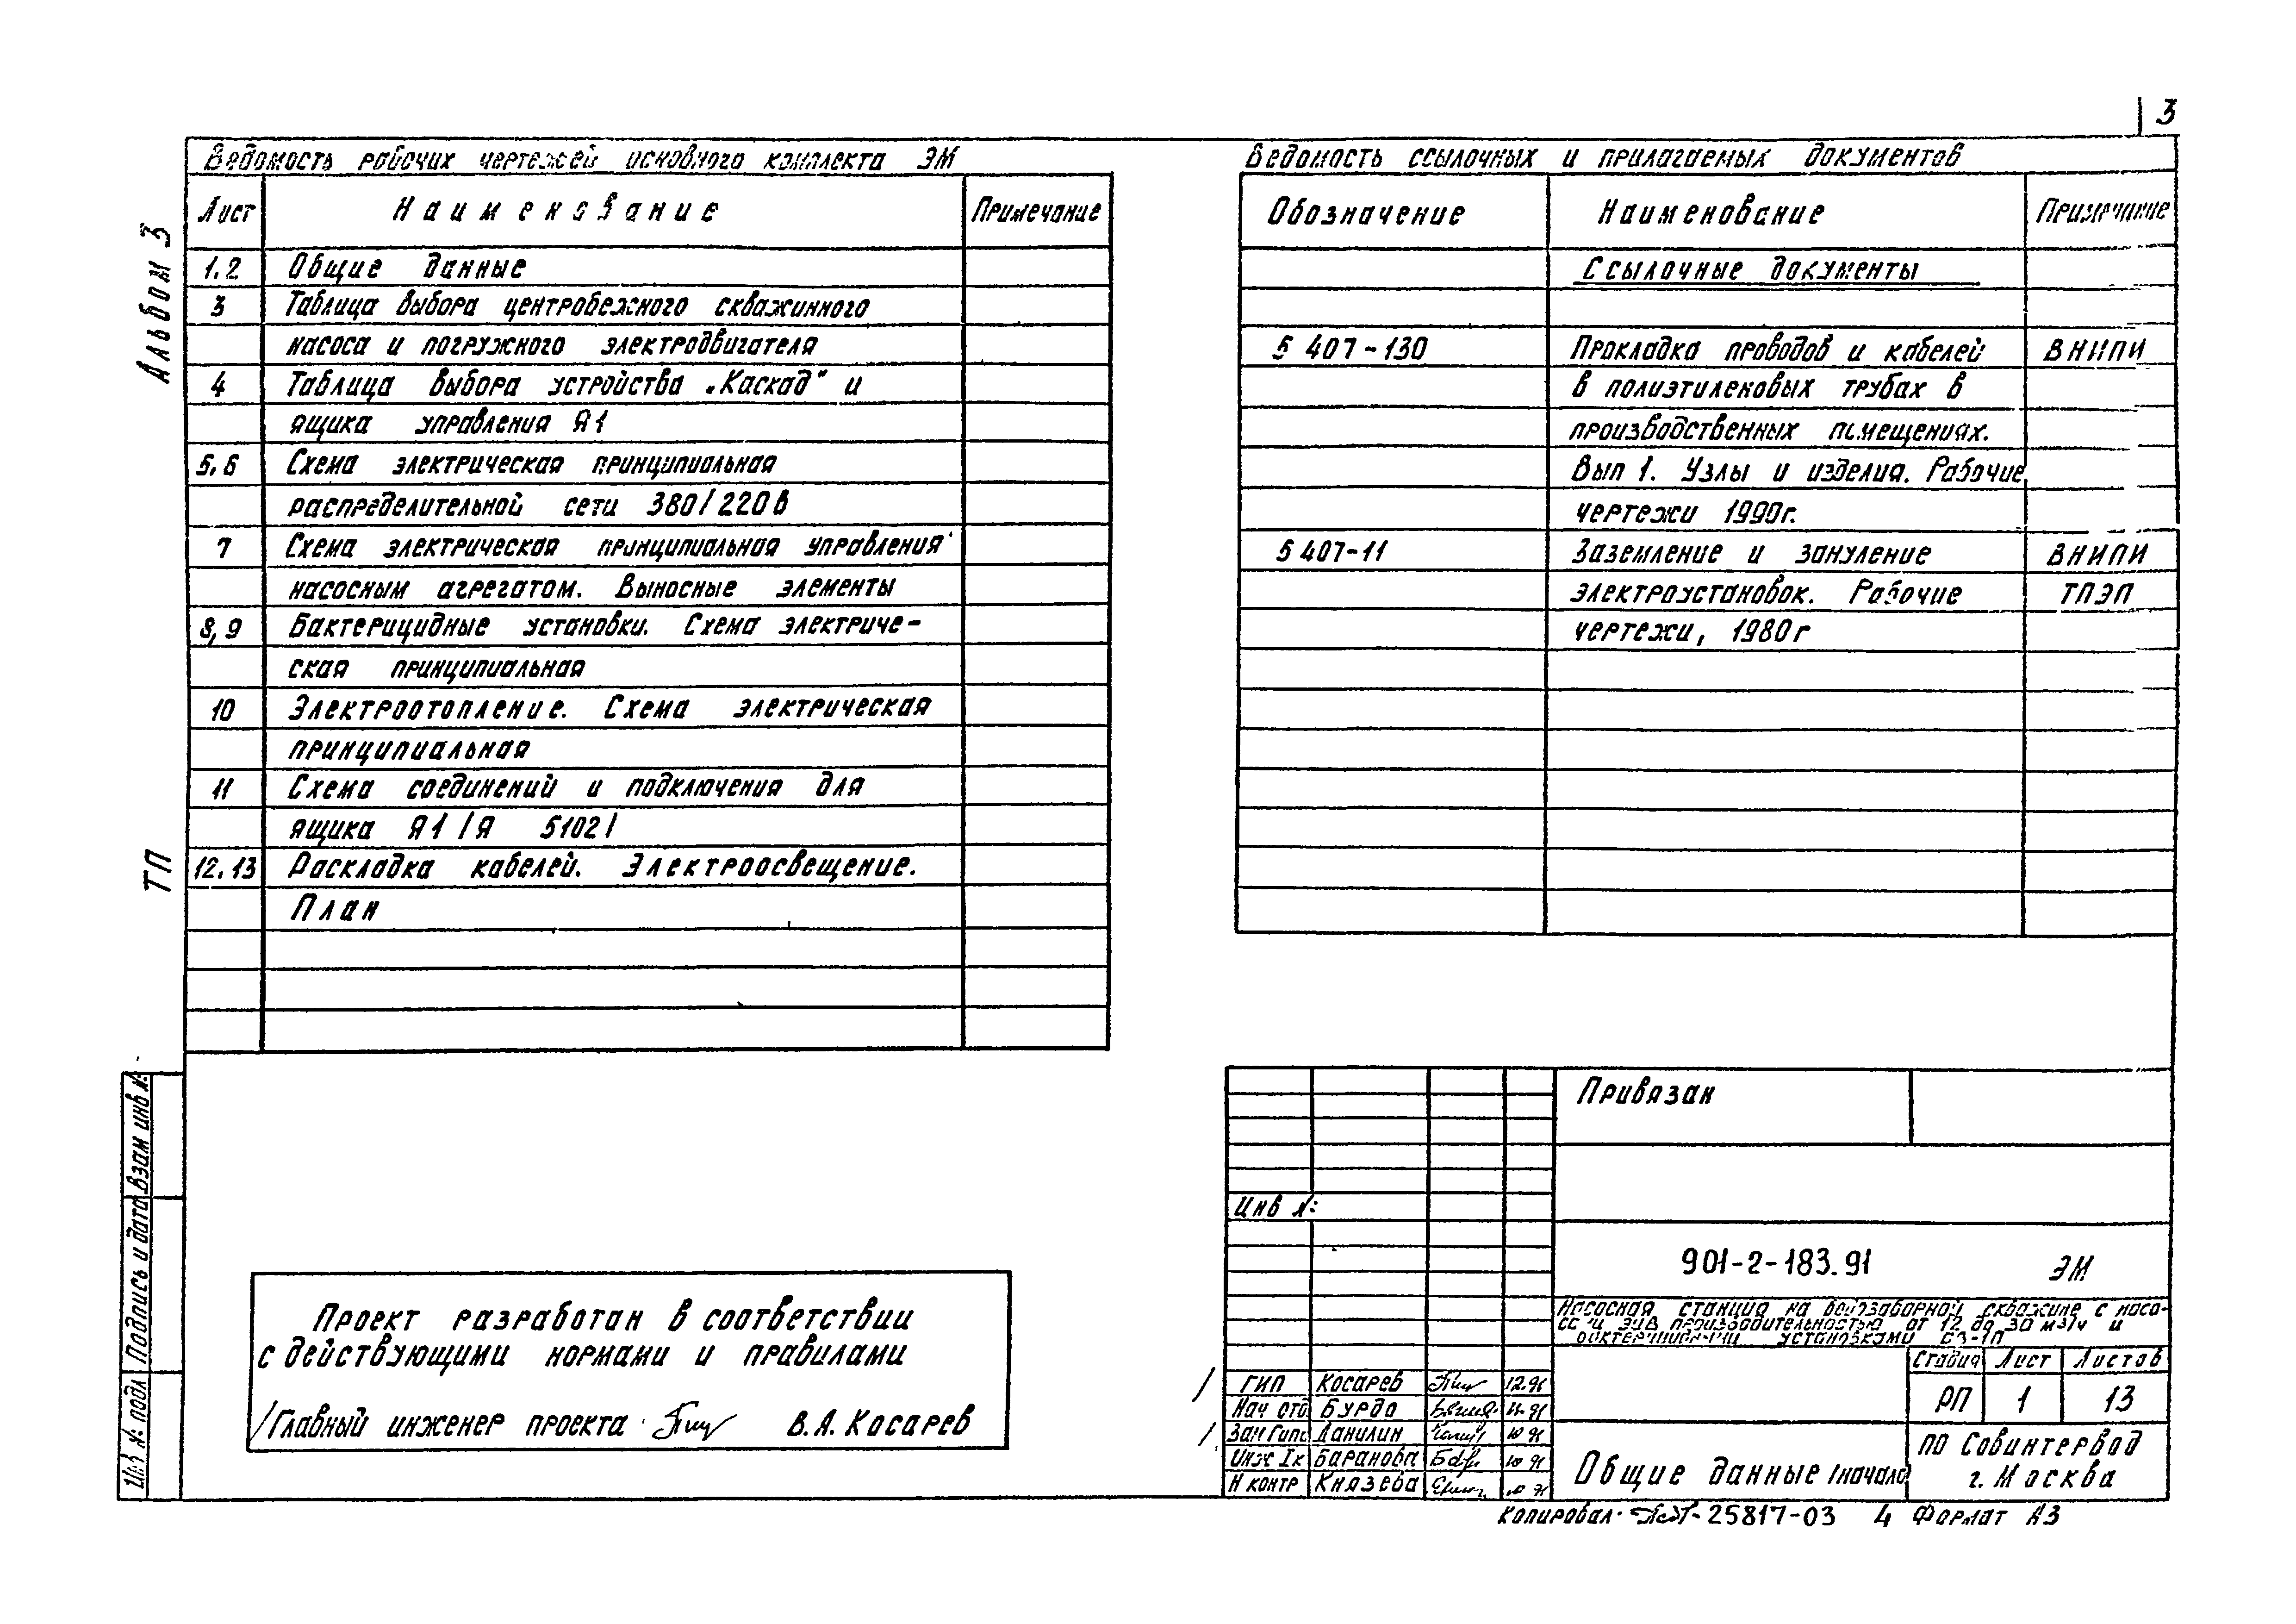 3
Альбом 3
ТП
Ведомость рабочих чертежей основного комплекта ЭМ
Лист Наименование Примечание
1.2 Общие данные
3 Таблица выбора центробежного скважинного
насоса и погружного электродвигателя
4 Таблица выбора устройства „Каскад" и
ящика управления Я1
5.6 Схема электрическая принципиальная
распределительной сети 380/220в
7 Схема электрическая принципиальная управления
насосным агрегатом. Выносные элементы
8,9 Бактерицидные установки. Схема электриче-
ская принципиальная
10 Электроотопление. Схема электрическая
принципиальная
11 Схема соединений и подключения для
ящика Я1 /Я 5102/
12.13 Раскладка кабелей. Электроосвещение.
План
Ведомость ссылочных и прилагаемых документов
Обозначение Наименование Примечание
Ссылочные документы
5 407-130 Прокладка проводов и кабелей ВНИПИ
в полиэтиленовых трубах в
производственных помещениях.
Вып 1. Узлы и изделия. Рабочие
чертежи 1990г.
5 407-11 Заземление и зануление ВНИПИ
электроустановок. Рабочие ТПЭП
чертежи, 1980г
Взам инв №
Подпись и дата
Инв № подл
Проект разработан в соответствии
с действующими нормами и правилами
/Главный инженер проекта В.А. Косарев
Привязан
Инв №
901-2-183.91 ЭМ
Насосная станция на водозаборной скважине с насо-
производительностью от 12 до 30 м3/ч и
установками
Стадия Лист Листов
РП 1 13
ГИП Косарев 12.91
Нач отд Бурдо
Зам Гипа Данилин 10 91
Инж Iк Баранова 10 91
Н контр Князева
Общие данные /начало
ПО Совинтервод
г. Москва
Копировал 25817-03 4 Формат А3